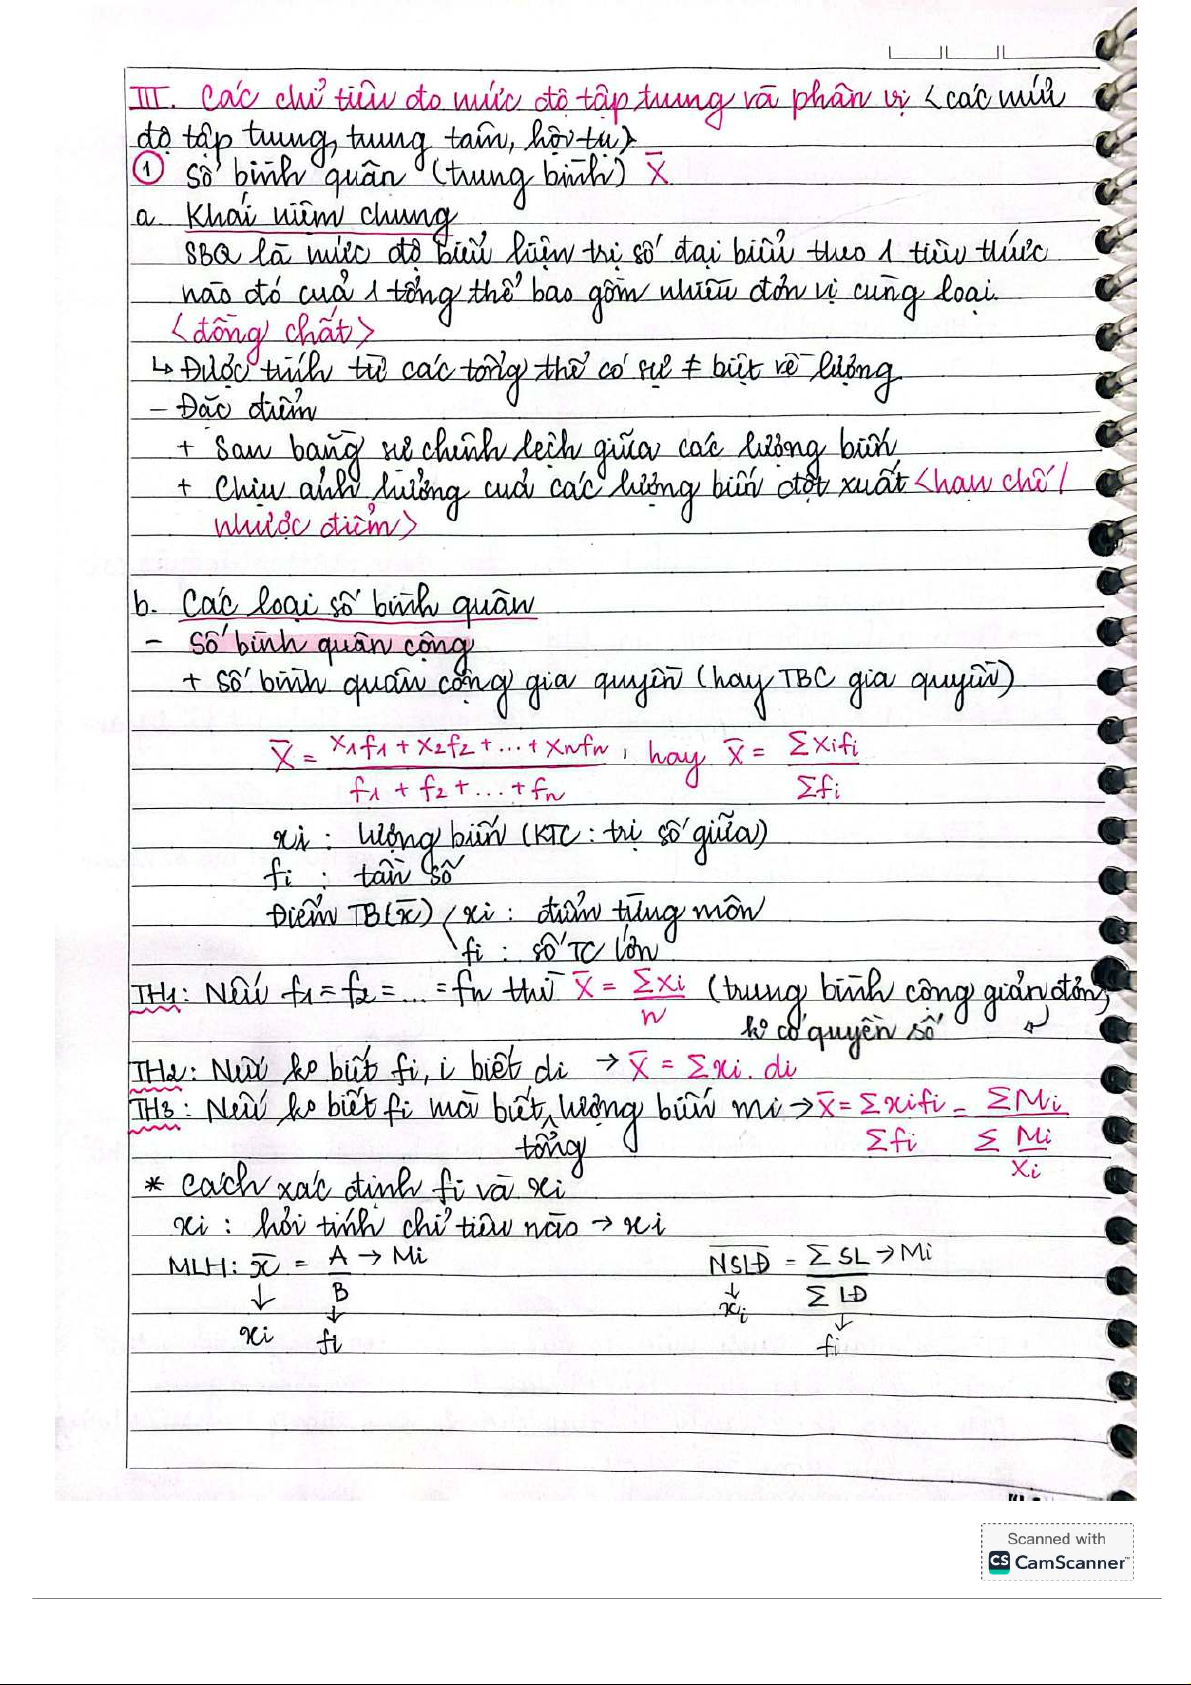 III. Các chỉ tiêu đo mức độ tập trung và phân vị <các mức
độ tập trung, trung tâm, hội tụ>
① Số bình quân (trung bình) X̄
a. Khái niệm chung
SBQ là mức độ biểu hiện trị số đại biểu theo 1 tiêu thức
nào đó của 1 tổng thể bao gồm nhiều đơn vị cùng loại.
<đồng chất>
↳ Được tính từ các tổng thể có sự ≠ biệt về lượng
- Đặc điểm
+ San bằng sự chênh lệch giữa các lượng biến
+ Chịu ảnh hưởng của các lượng biến đột xuất <hạn chế /
nhược điểm>
b. Các loại số bình quân
- Số bình quân cộng
+ Số bình quân cộng gia quyền (hay TBC gia quyền)
X̄ = (x1f1 + x2f2 + ... + xnfn) / (f1 + f2 + ... + fn), hay X̄ = Σxifi / Σfi
xi : lượng biến (KTC : trị số giữa)
fi : tần số
Điểm TB(x̄) / xi : điểm từng môn
\ fi : số TC lớn
TH1 : Nếu f1 = f2 = ... = fn thì X̄ = Σxi / n (trung bình cộng giản đơn,
ko có quyền số
TH2 : Nếu ko biết fi, i biết di → X̄ = Σxi . di
TH3 : Nếu ko biết fi mà biết tổng lượng biến mi → X̄ = Σxifi / Σfi = ΣMi / Σ Mi/xi
* Cách xác định fi và xi
xi : hỏi tính chỉ tiêu nào → xi
MLH : x̄ = A → Mi / B NSLĐ = Σ SL → Mi / Σ LĐ
↓ ↓ ↓ ↓
xi fi xi fi
Scanned with
CS CamScanner